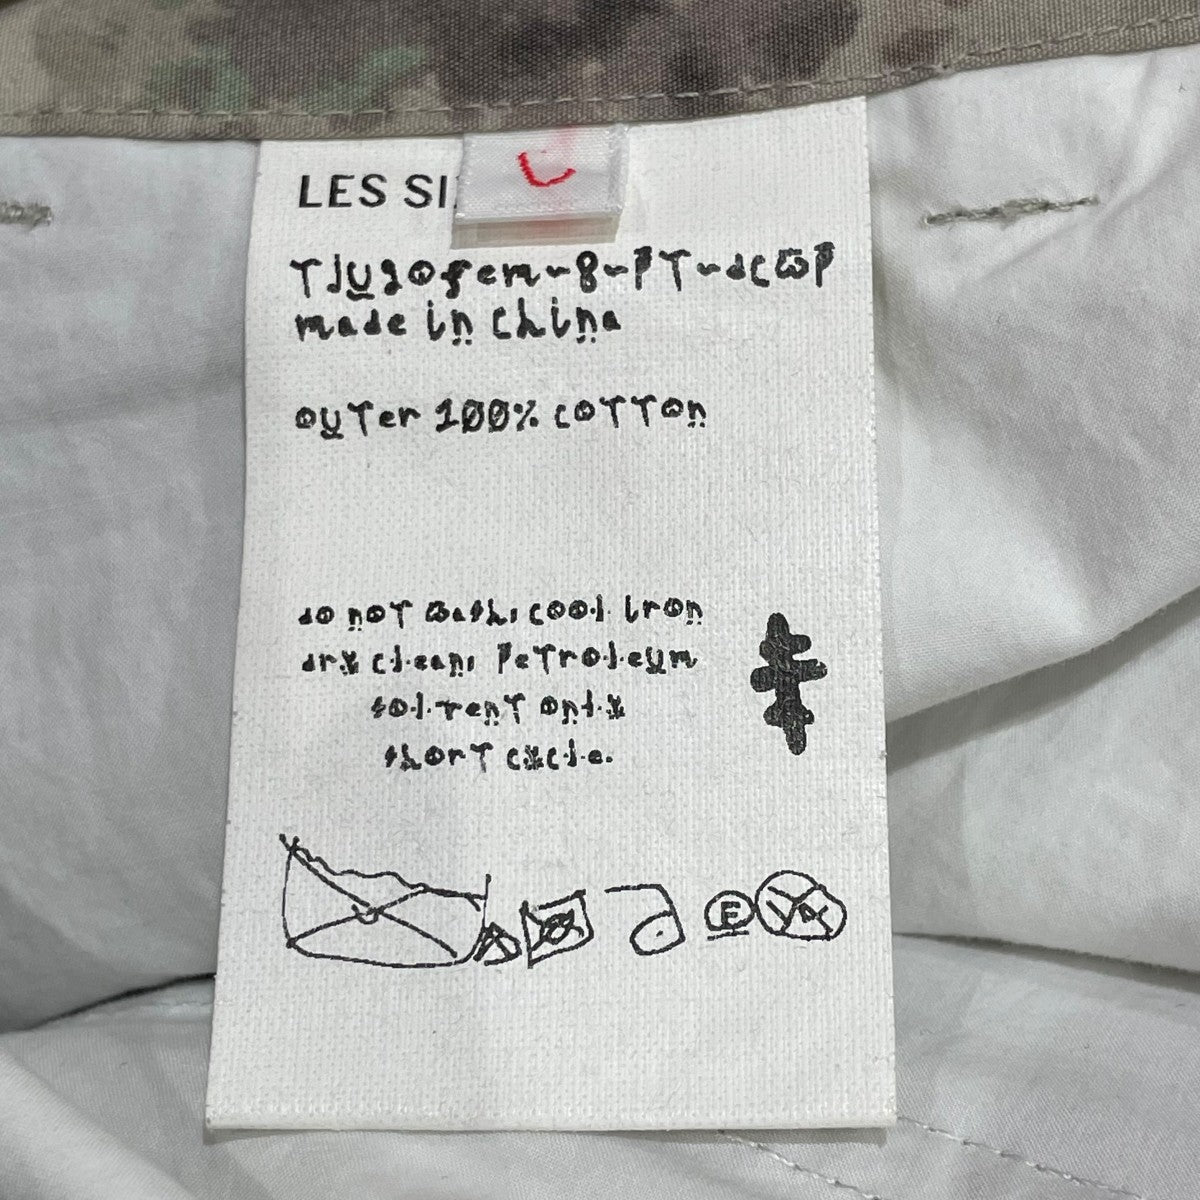 LES SI
L
made in china
outer 100% cotton
do not wash, cool iron
dry clean, petroleum
solvent only
short cycle.
F
W